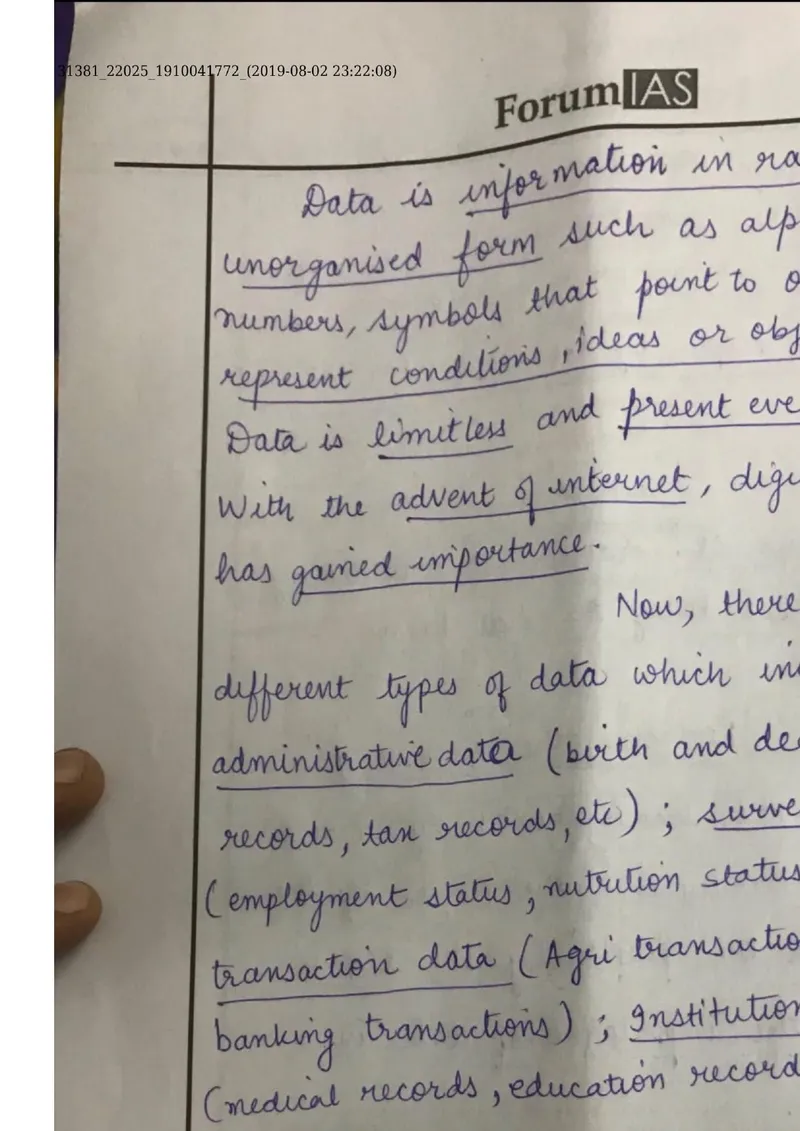 31381_22025_1910041772_(2019-08-02 23:22:08)
ForumIAS
Data is information in ra
unorganised form such as alp
numbers, symbols that point to o
represent conditions, ideas or obj
Data is limitless and present eve
With the advent of internet, digi
has gained importance.
Now, there
different types of data which in
administrative data (birth and de
records, tax records, etc) ; surve
(employment status, nutrition status
transaction data (Agri transactio
banking transactions) ; Institution
(medical records, education record